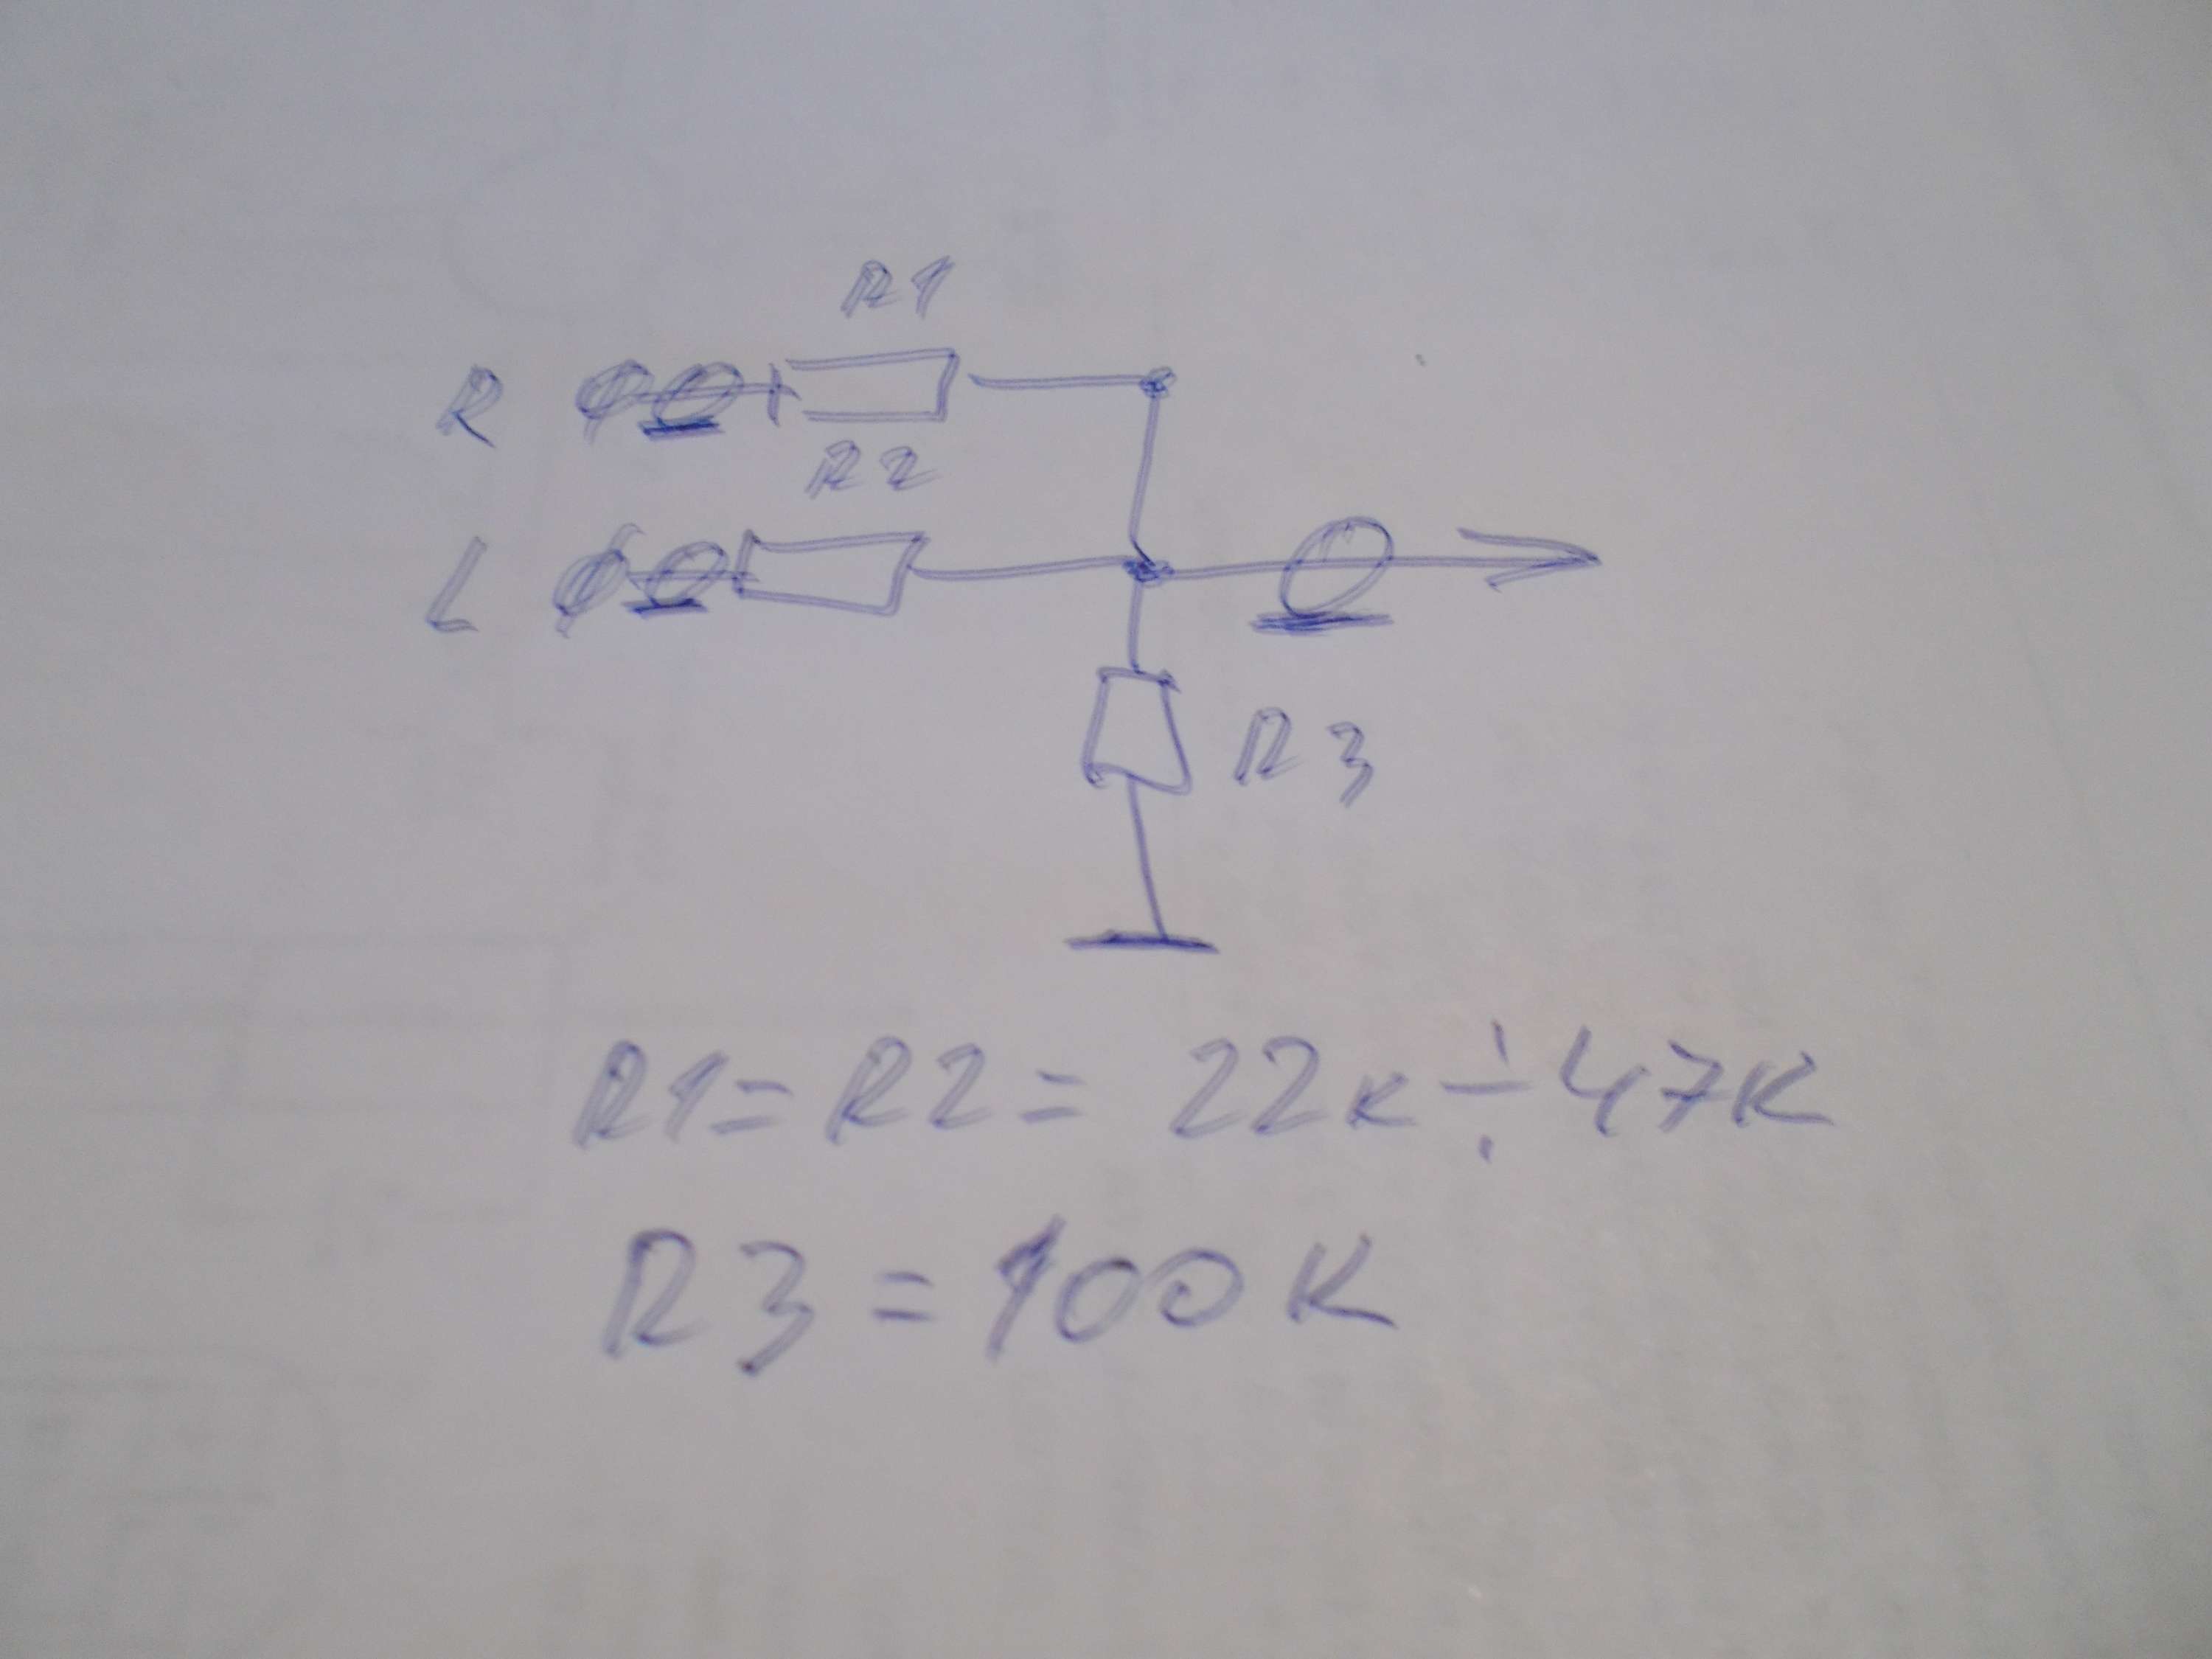 R1
R
R2
L
R3
R1 = R2 = 22к ÷ 47к
R3 = 100к